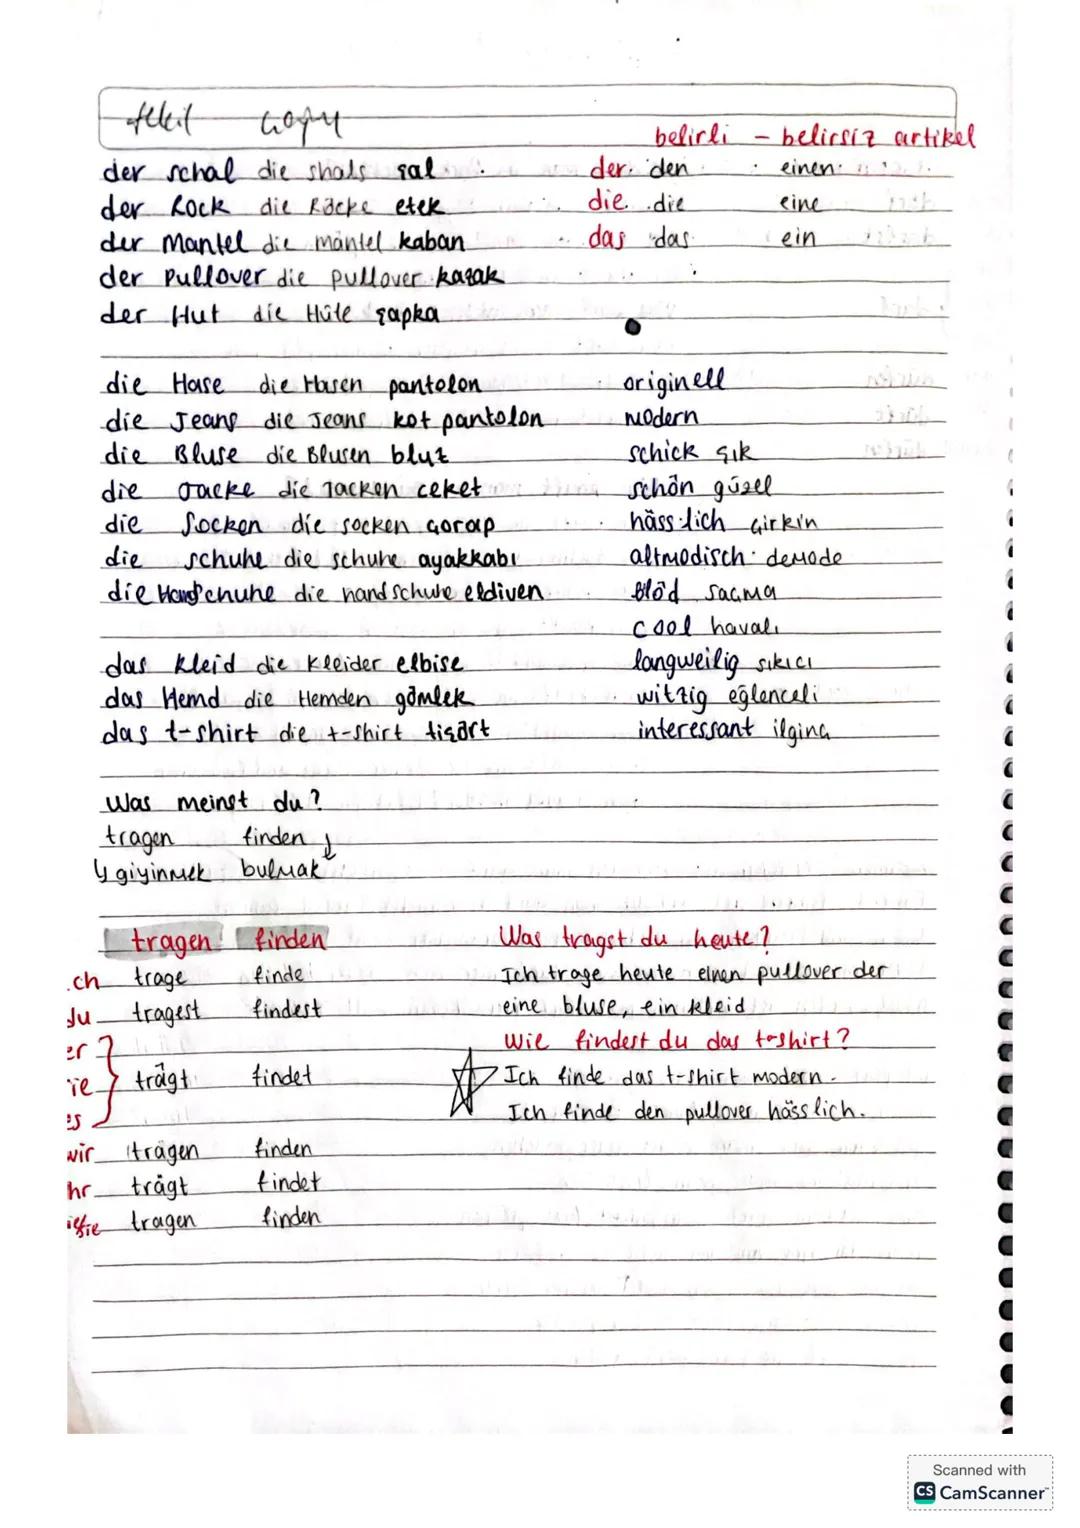 tekil çoğul
belirli – belirsiz artikel
der schal die shals şal
der Rock die Röcke etek
der Mantel die mäntel kaban
der Pullover die pullover kazak
der Hut die Hüte şapka
der den einen
die die eine
das das ein
die Hose die Hosen pantolon
die Jeans die Jeans kot pantolon
die Bluse die Blusen bluz
die Jacke die Jacken ceket
die Socken die socken çorap
die schuhe die schuhe ayakkabı
die Handschuhe die handschuhe eldiven
das Kleid die Kleider elbise
das Hemd die Hemden gömlek
das t-shirt die t-shirt tişört
originell
modern
schick şık
schön güzel
hässlich çirkin
altmodisch demode
blöd saçma
cool havalı
langweilig sıkıcı
witzig eğlenceli
interessant ilginç
Was meinst du?
tragen finden
giyinmek bulmak
tragen finden
ch trage finde
du tragest findest
er
ie trägt findet
es
wir trägen finden
hr trägt findet
sie tragen finden
Was tragst du heute?
Ich trage heute einen pullover der
eine bluse, ein kleid
Wie findest du das t-shirt?
Ich finde das t-shirt modern.
Ich finde den pullover hässlich.
Scanned with
CS CamScanner